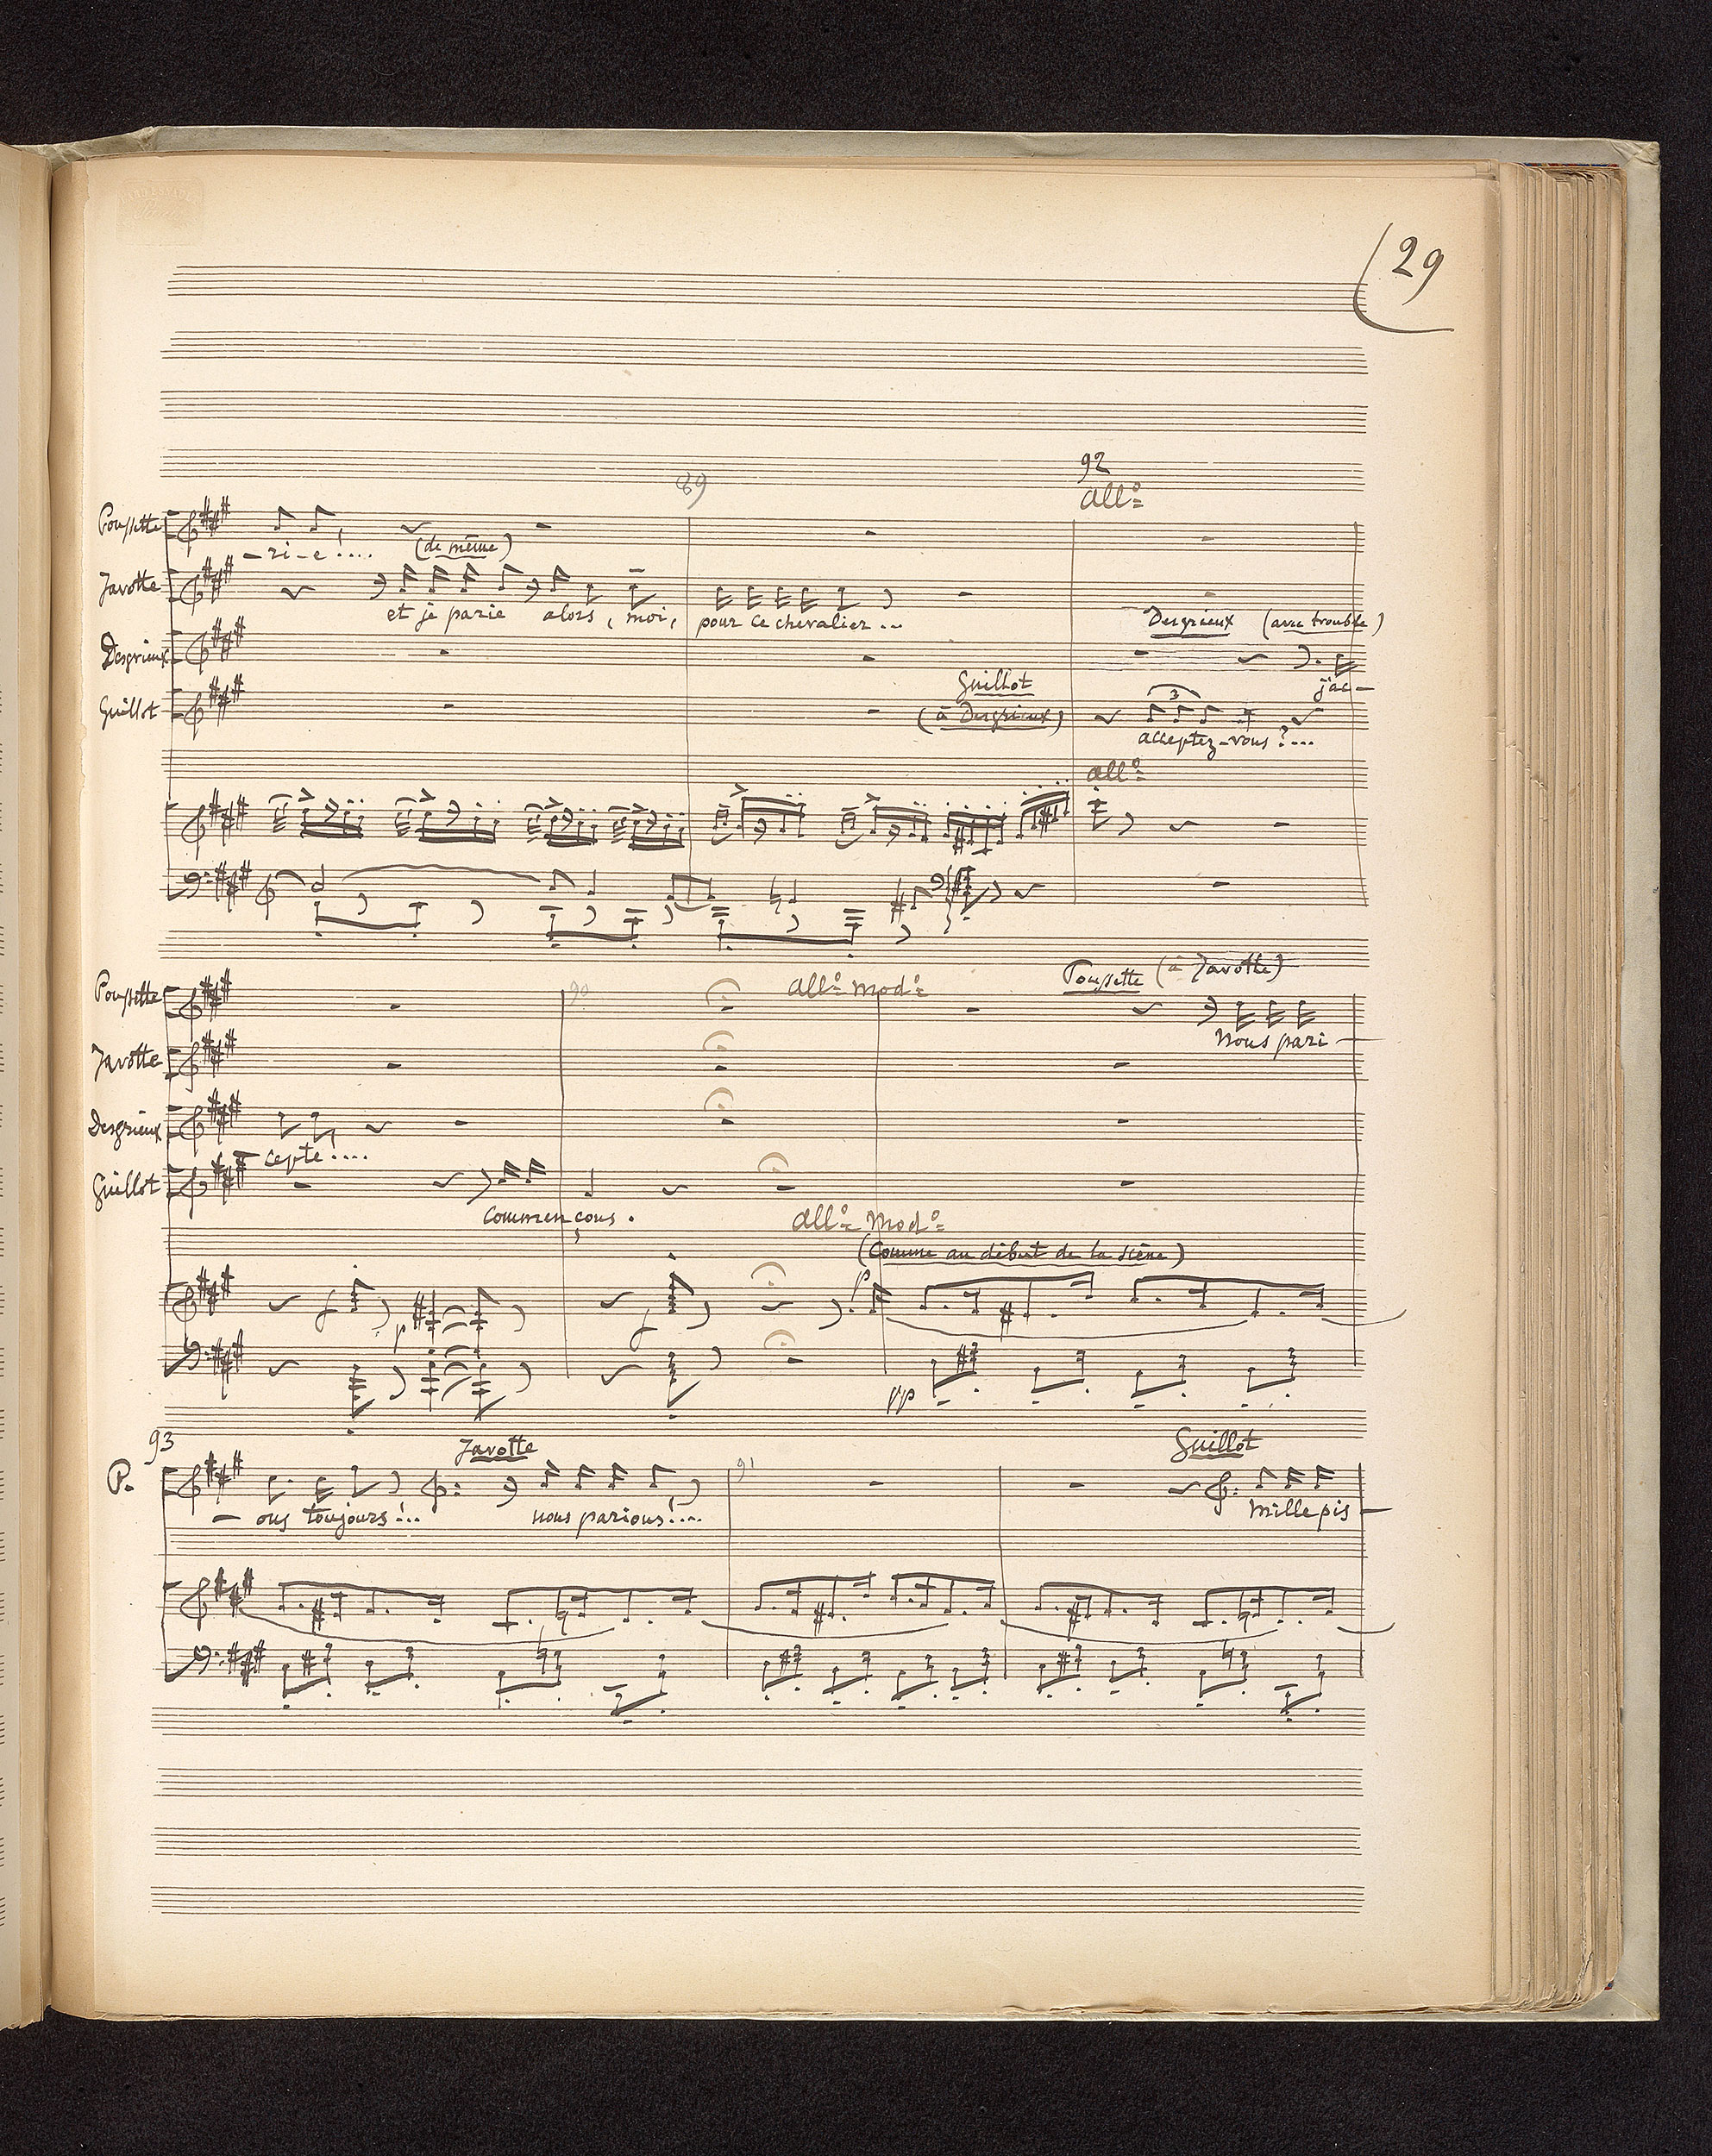 29
92
89
all°
Poussette
-ri-e!....
(de même)
Javotte
et je parie alors, moi, pour ce chevalier...
Desgrieux (avec trouble)
Desgrieux
j'ac-
Guillot
Guillot
(à Desgrieux)
3
acceptez-vous?...
all°
Poussette (à Javotte)
90
all° mod°
Poussette
Nous pari-
Javotte
Desgrieux
- cepte!...
Guillot
Commençons.
all° Mod°
(Comme au début de la scène)
f p f p
pp
93
Javotte
Guillot
P.
91
- ons toujours!...
nous parions!...
Mille pis-